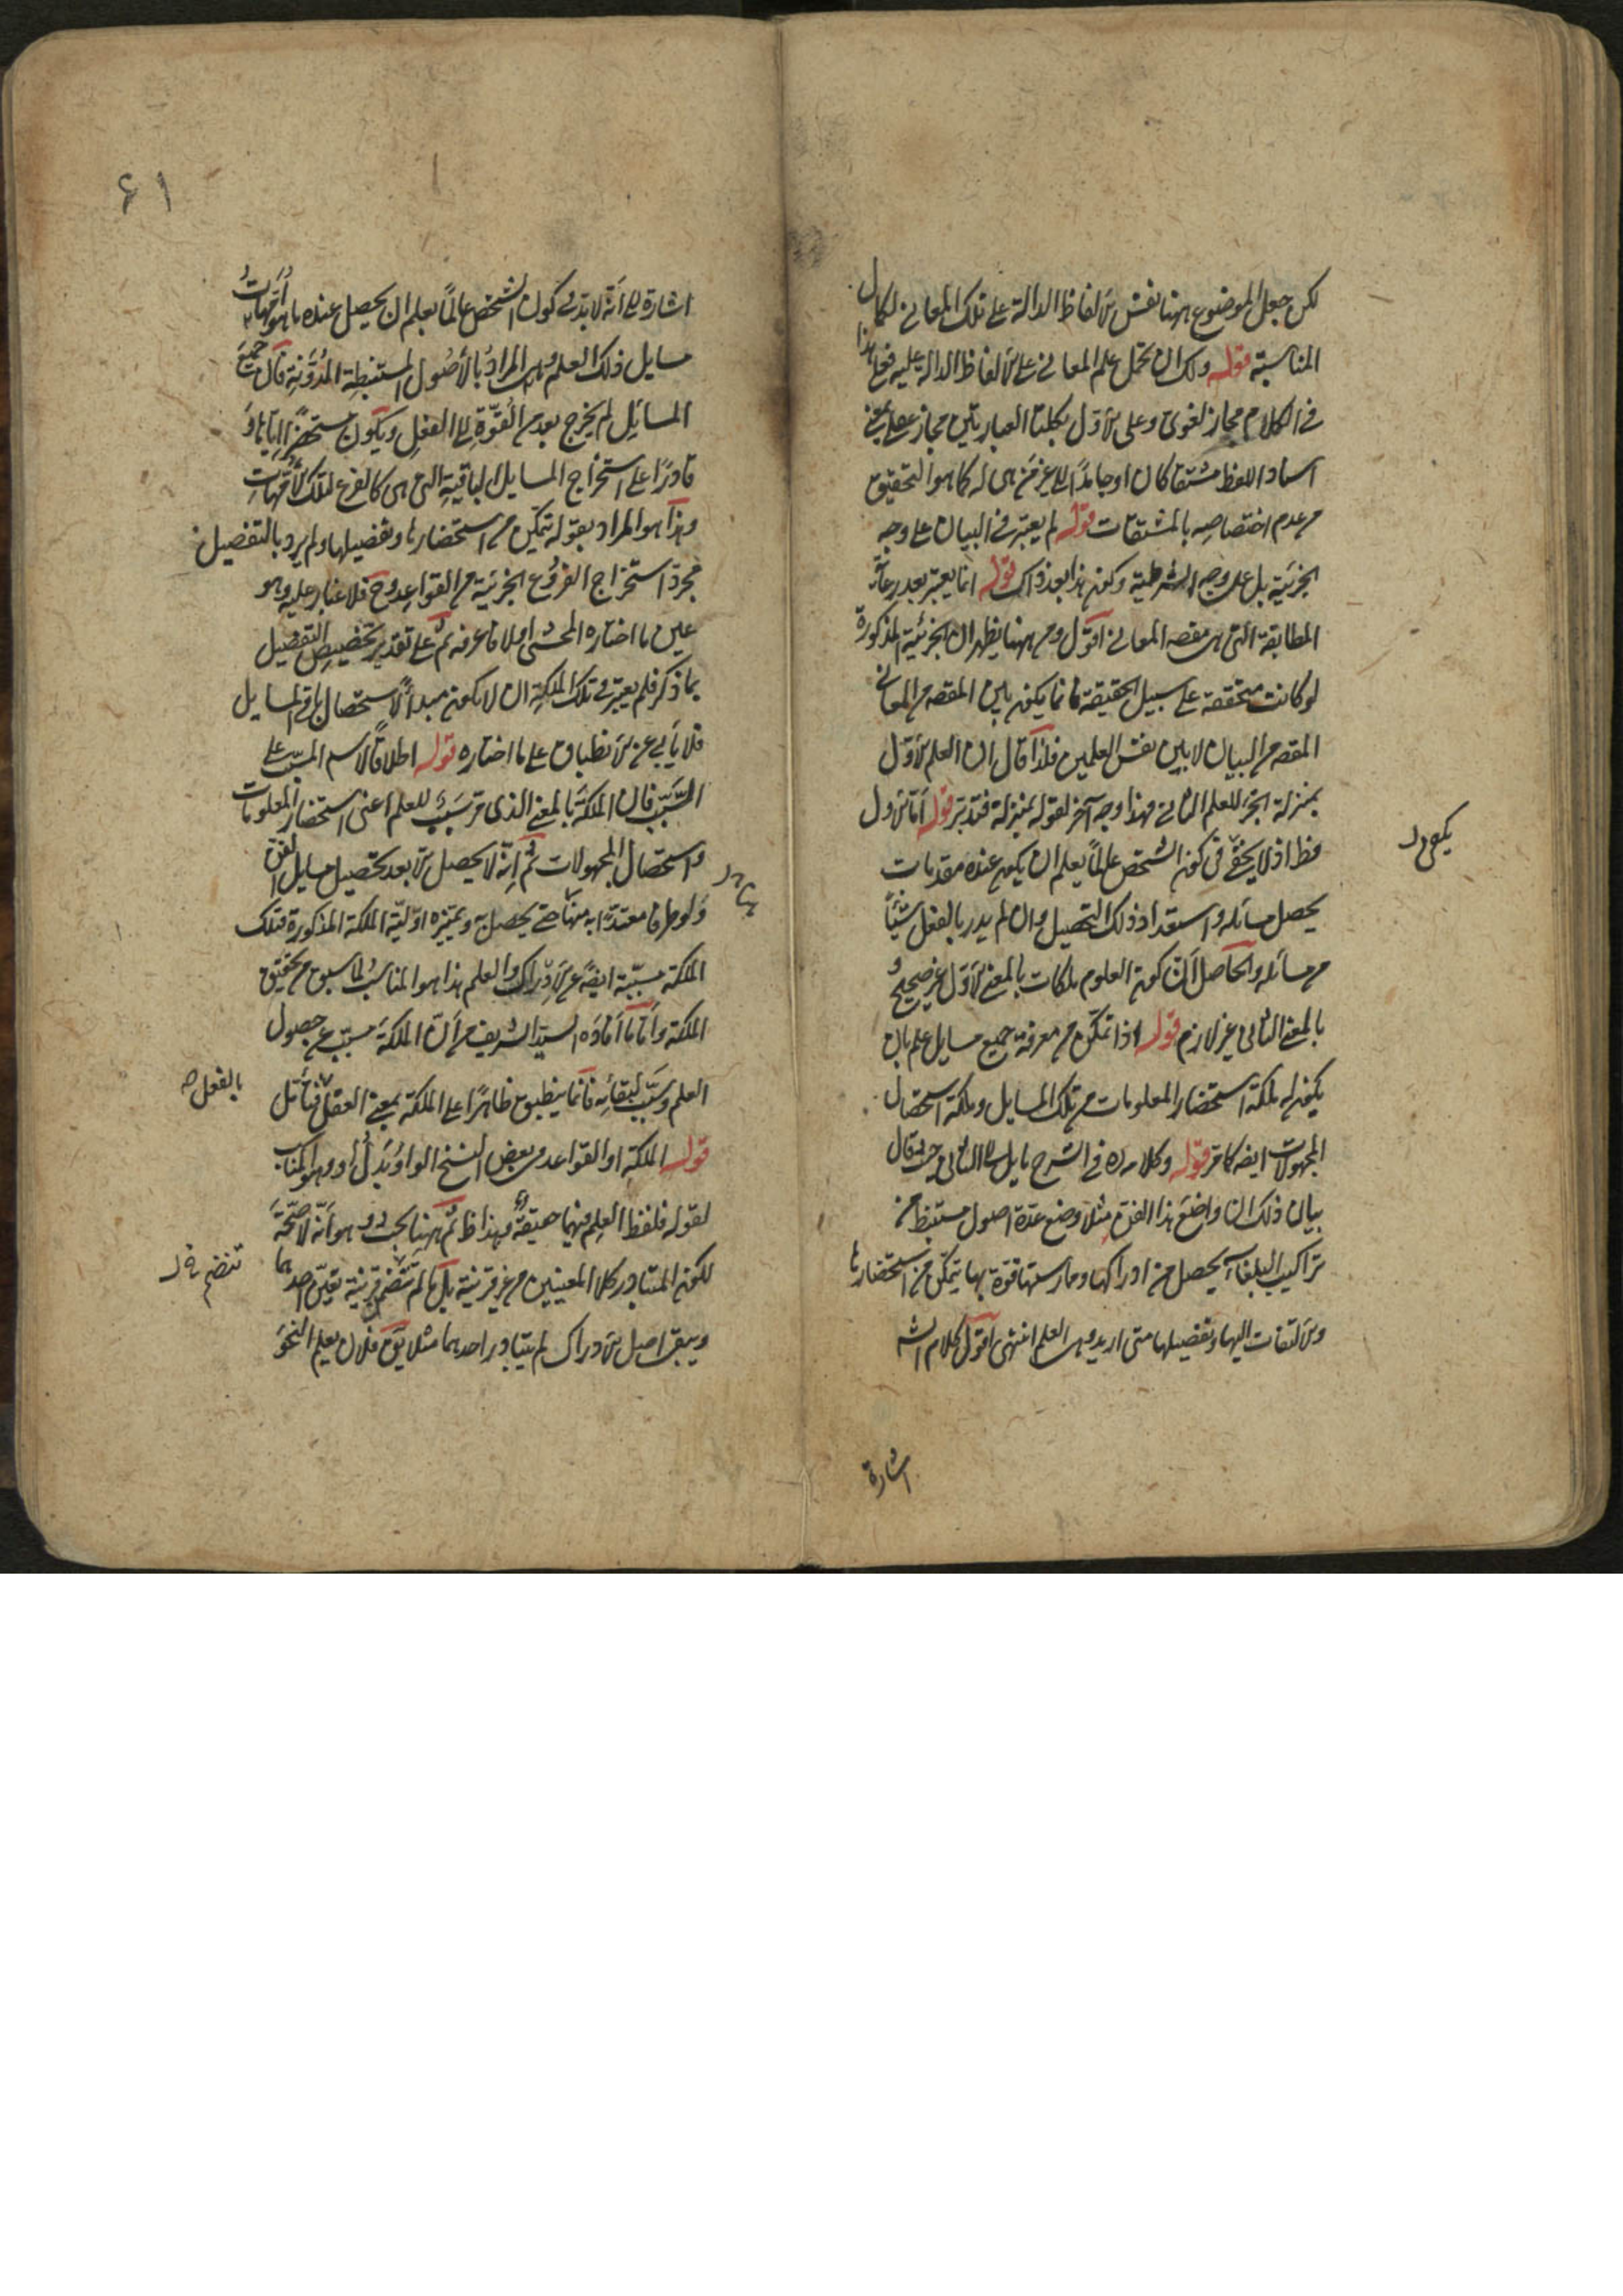 لكن جعل الموضوع ههنا نفس الالفاظ الدالة على تلك المعانى لكمال
المناسبة قوله ولك ان تحمل علم المعانى على الالفاظ الدالة عليه فعلى هذا
فى الكلام مجاز لغوى وعلى الاول بكلتا العبارتين مجاز عقلى بمعنى
اسناد اللفظ مشتقا كان او جامدا الى غير من هى له كما هو التحقيق
من عدم اختصاصه بالمشتقات قوله لم يعتبر فى البيان على وجه
الجزئية بل على وجه الشرطية وكون هذا بعد ذاك قوله انما يعتبر بعد رعاية
المطابقة التى هى مقصد المعانى اقول ومن ههنا يظهر ان الجزئية المذكورة
لو كانت متحققة على سبيل الحقيقة فانما يكون بين المقصد من المعانى
المقصد من البيان لا بين نفس العلمين فلذا قال ان العلم الاول
بمنزلة الجزء للعلم الثانى فهذا وجه آخر لقوله بمنزلة فتدبر قوله اما الاول
فظ اذ لا يخفى فى كون الشخص عالما بعلم ان يكون عنده مقدمات
يحصل مسائله واستعداد ذلك التحصيل وان لم يدر بالفعل شيئا
من مسائله والحاصل ان كون العلوم ملكات بالمعنى الاول غير صحيح و
بالمعنى الثانى غير لازم قوله اذا تمكن من معرفة جميع مسايل علم بان
يكون له ملكة استحضار المعلومات من تلك المسايل وملكة استحصال
المجهولات ايضه كما مر قوله وكلامه ره فى الشرح مايل الى الثانى حيث قال
بيان ذلك ان واضع هذا الفن مثلا وضع عدة اصول مستنبطة من
تراكيب البلغاء يحصل من ادراكها وممارستها قوة بها يتمكن من استحضارها
والالتفات اليها وتفصيلها متى اريد وهى العلم انتهى اقول كلام الشه
اشارة
يكفى ل
۶۱
اشارة الى انه لا بد فى كون الشخص عالما بعلم ان يحصل عنده ما هو امهات
مسايل ذلك العلم وهى المراد بالاصول المستنبطة المدونة فان جميع
المسائل لم يخرج بعد من القوة الى الفعل ويكون مستحضرا اياها و
قادرا على استخراج المسايل الباقية التى هى كالفرع لتلك الامهات
وهذا هو المراد بقوله يتمكن من استحضارها وتفصيلها ولم يرد بالتفصيل
مجرد استخراج الفروع الجزئية من القواعد وح فلا غبار عليه وهو
عين ما اختاره المحشى اولا فاعرفه ثم على تقدير تخصيص التفصيل
بما ذكر فلم يعتبر فى تلك الملكة ان لا يكون مبدأ لاستحصال باقى المسايل
فلا يأبى عن الانطباق على ما اختاره قوله اطلاقا لاسم المسبب على
السبب فان الملكة بالمعنى الذى مر سبب للعلم اعنى استحضار المعلومات
واستحصال المجهولات ثم انه لا يحصل الا بعد تحصيل مسايل الفن
ولو طرفا معتدا به منها حتى يحصل به وتميزه اولية الملكة المذكورة فتلك
الملكة مسببة ايضه عن الادراك والعلم هذا هو المناسب لما سبق من تحقيق
الملكة واما ما افاده السيد الشريف من ان الملكة مسبب عن حصول
العلم وسبب لبقائه فانما ينطبق ظاهرا على الملكة بمعنى العقل فتأمل
بالفعل صه
قوله الملكة او القواعد فى بعض النسخ الواو بدل او وهو المناسب
لقوله فلفظ العلم فيهما حقيقة وهذا ظ ثم ههنا بحث وهو انه لا صحة
لكون المتبادر كلا المعنيين من غير قرينة بل ما لم تنضم قرينة تعين احدهما
تنضم فه ل
ويبقى اصل الادراك لم يتبادر احدهما مثلا يق فلان يعلم النحو